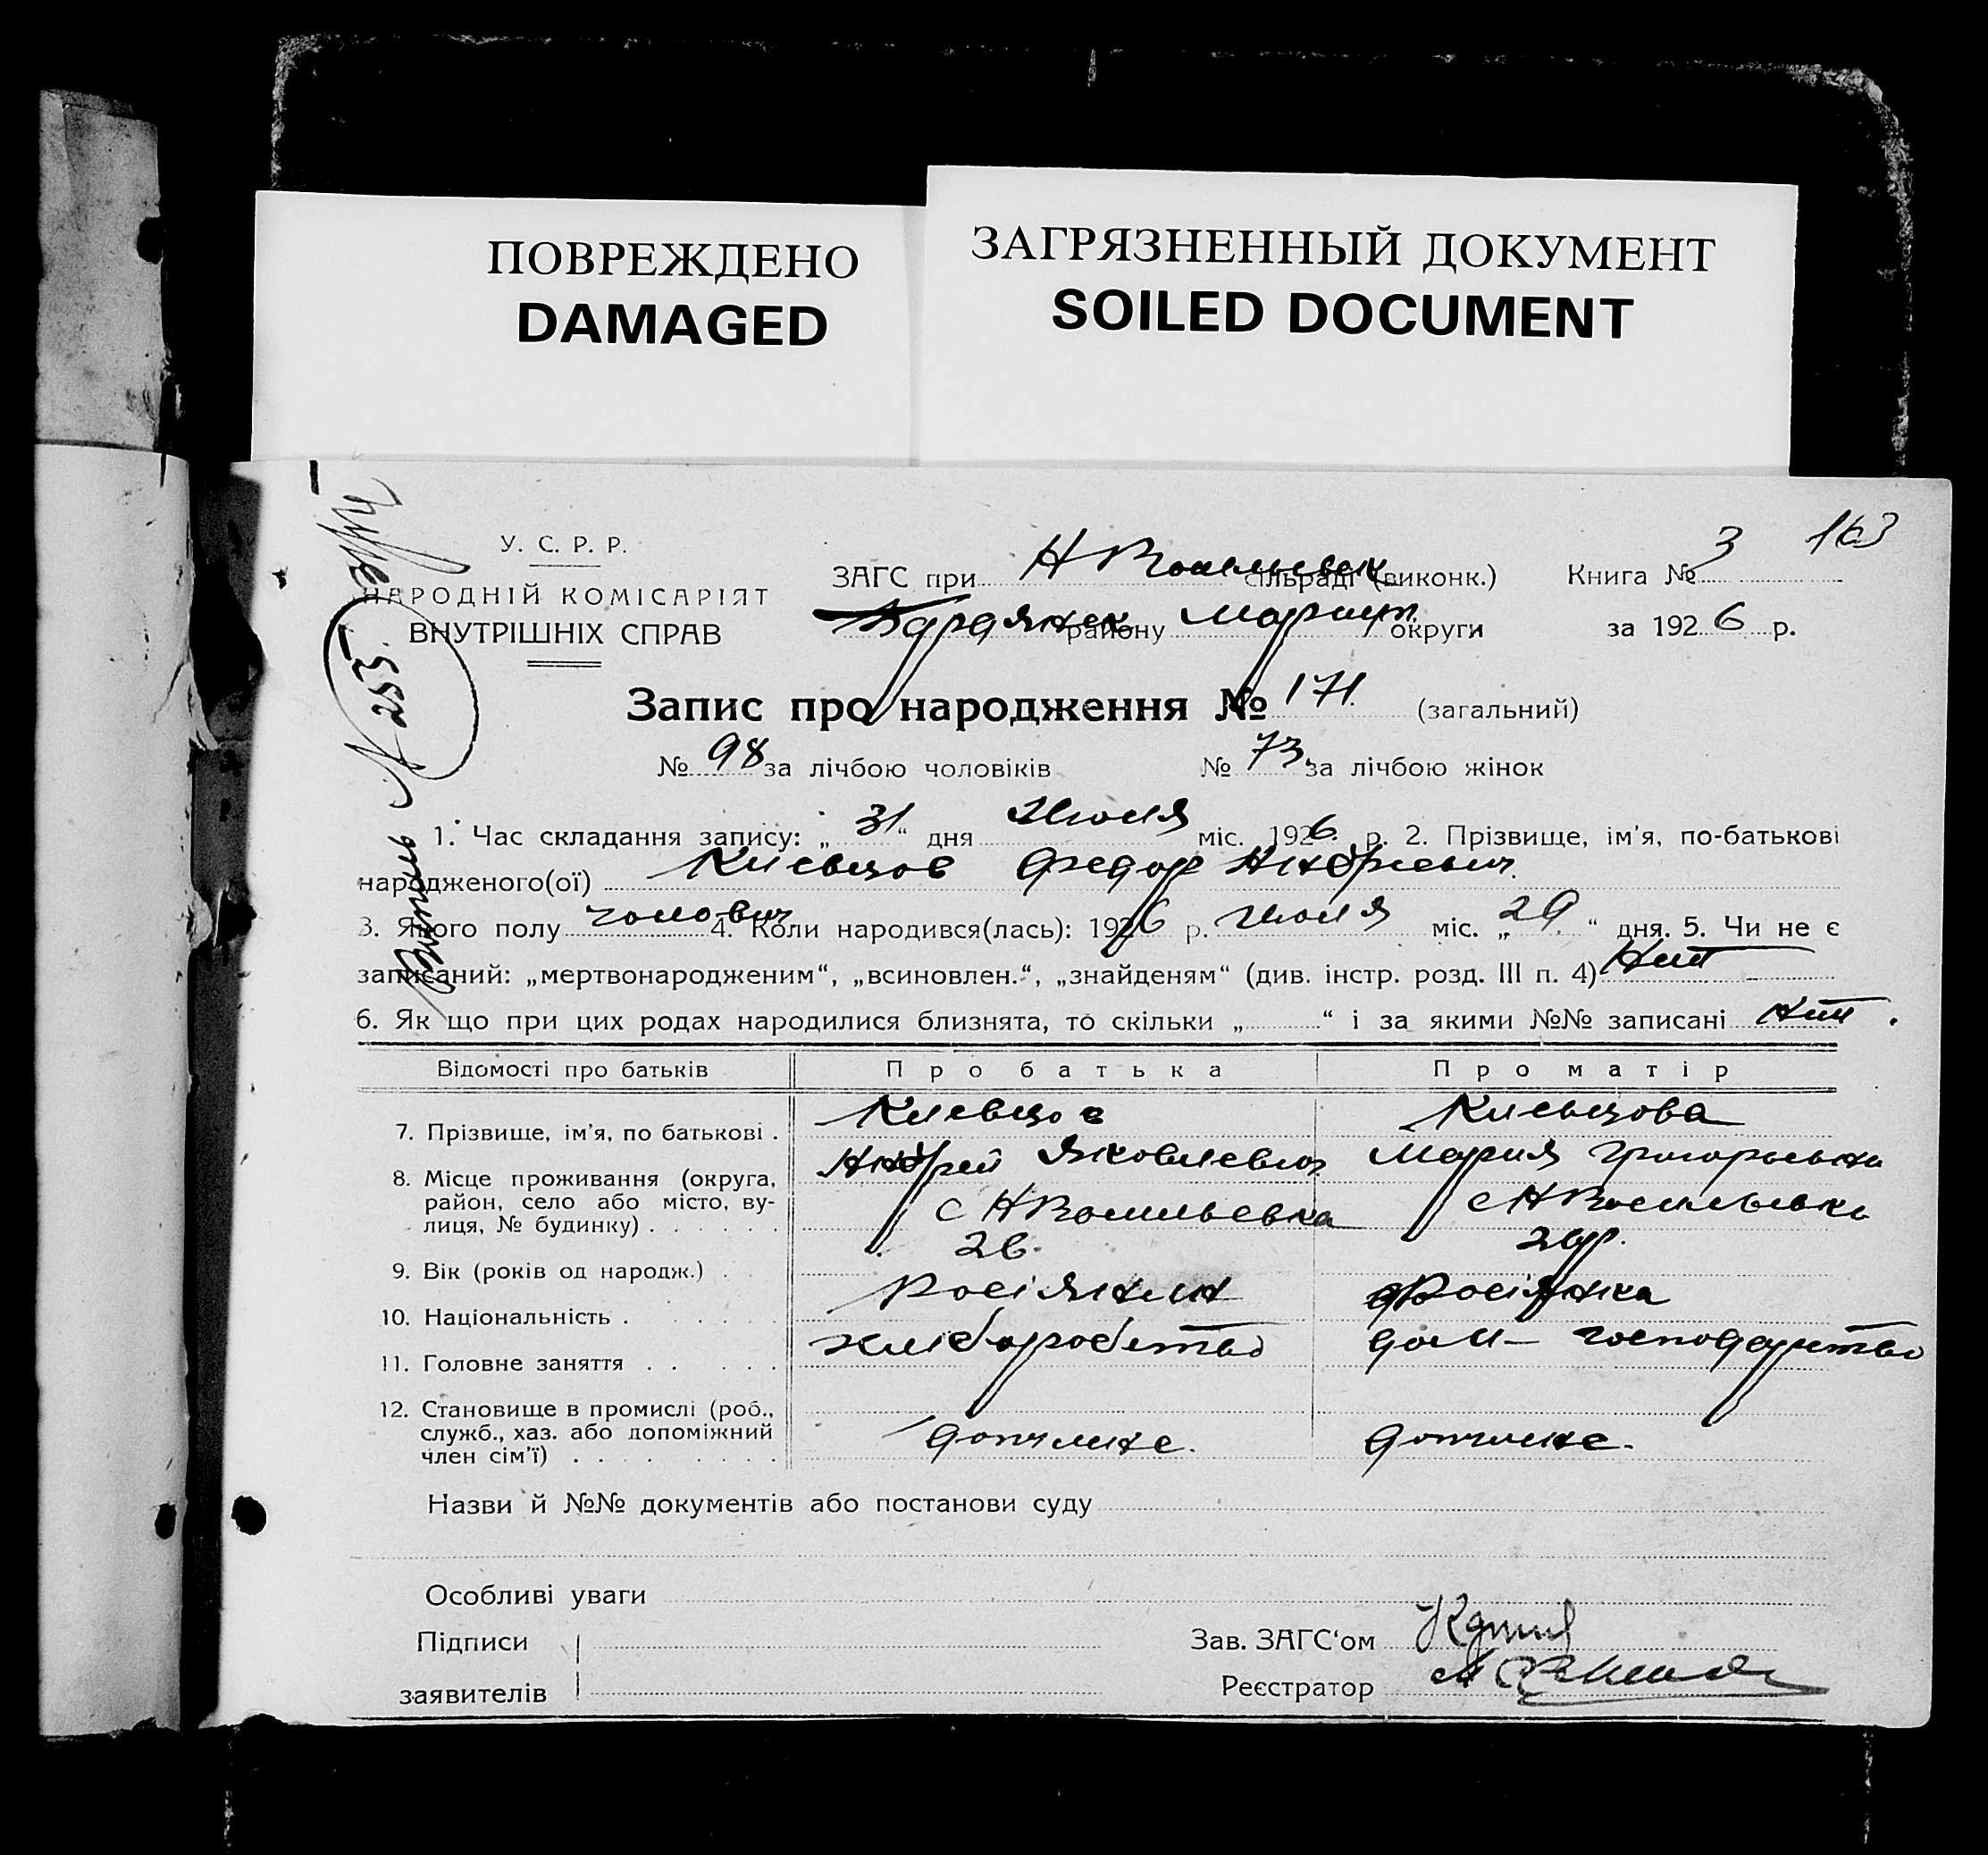 ПОВРЕЖДЕНО
DAMAGED
ЗАГРЯЗНЕННЫЙ ДОКУМЕНТ
SOILED DOCUMENT
163
У. С. Р. Р.
НАРОДНІЙ КОМІСАРІЯТ
ВНУТРІШНІХ СПРАВ
№ 255
ЗАГС при Н Васильевск сільраді (виконк.) Книга № 3
Бардянск району Мариуп. округи за 1926 р.
Запис про народження № 171. (загальний)
№ 98 за лічбою чоловіків № 73. за лічбою жінок
1. Час складання запису: „31“ дня Июля міс. 1926. р. 2. Прізвище, ім’я, по-батькові
народженого(ої) Киевцов Федор Андреевич.
3. Якого полу чолович 4. Коли народився(лась): 1926 р. Июля міс. „29.“ дня. 5. Чи не є
записаний: „мертвонародженим“, „всиновлен.“, „знайденям“ (див. інстр. розд. III п. 4) Нит
6. Як що при цих родах народилися близнята, то скільки „ “ і за якими №№ записані Нит.
Відомості про батьків Про батька Про матір
7. Прізвище, ім’я, по батькові . Киевцов Киевцова
Андрей Яковлевич Мария Григорьевна
8. Місце проживання (округа,
район, село або місто, ву-
лиця, № будинку) . . . . . . с Н Васильевка с Н Васильевка
9. Вік (років од народж.) . . 26. 26р.
10. Національність . . . . . . Росіянин Росіянка
11. Головне заняття . . . . . хліборобство дом – господарство
12. Становище в промислі (роб.,
служб., хаз. або допоміжний
член сім’ї) . . . . . . . .
Назви й №№ документів або постанови суду
Особливі уваги
Підписи
заявителів
Зав. ЗАГС‘ом
Реєстратор